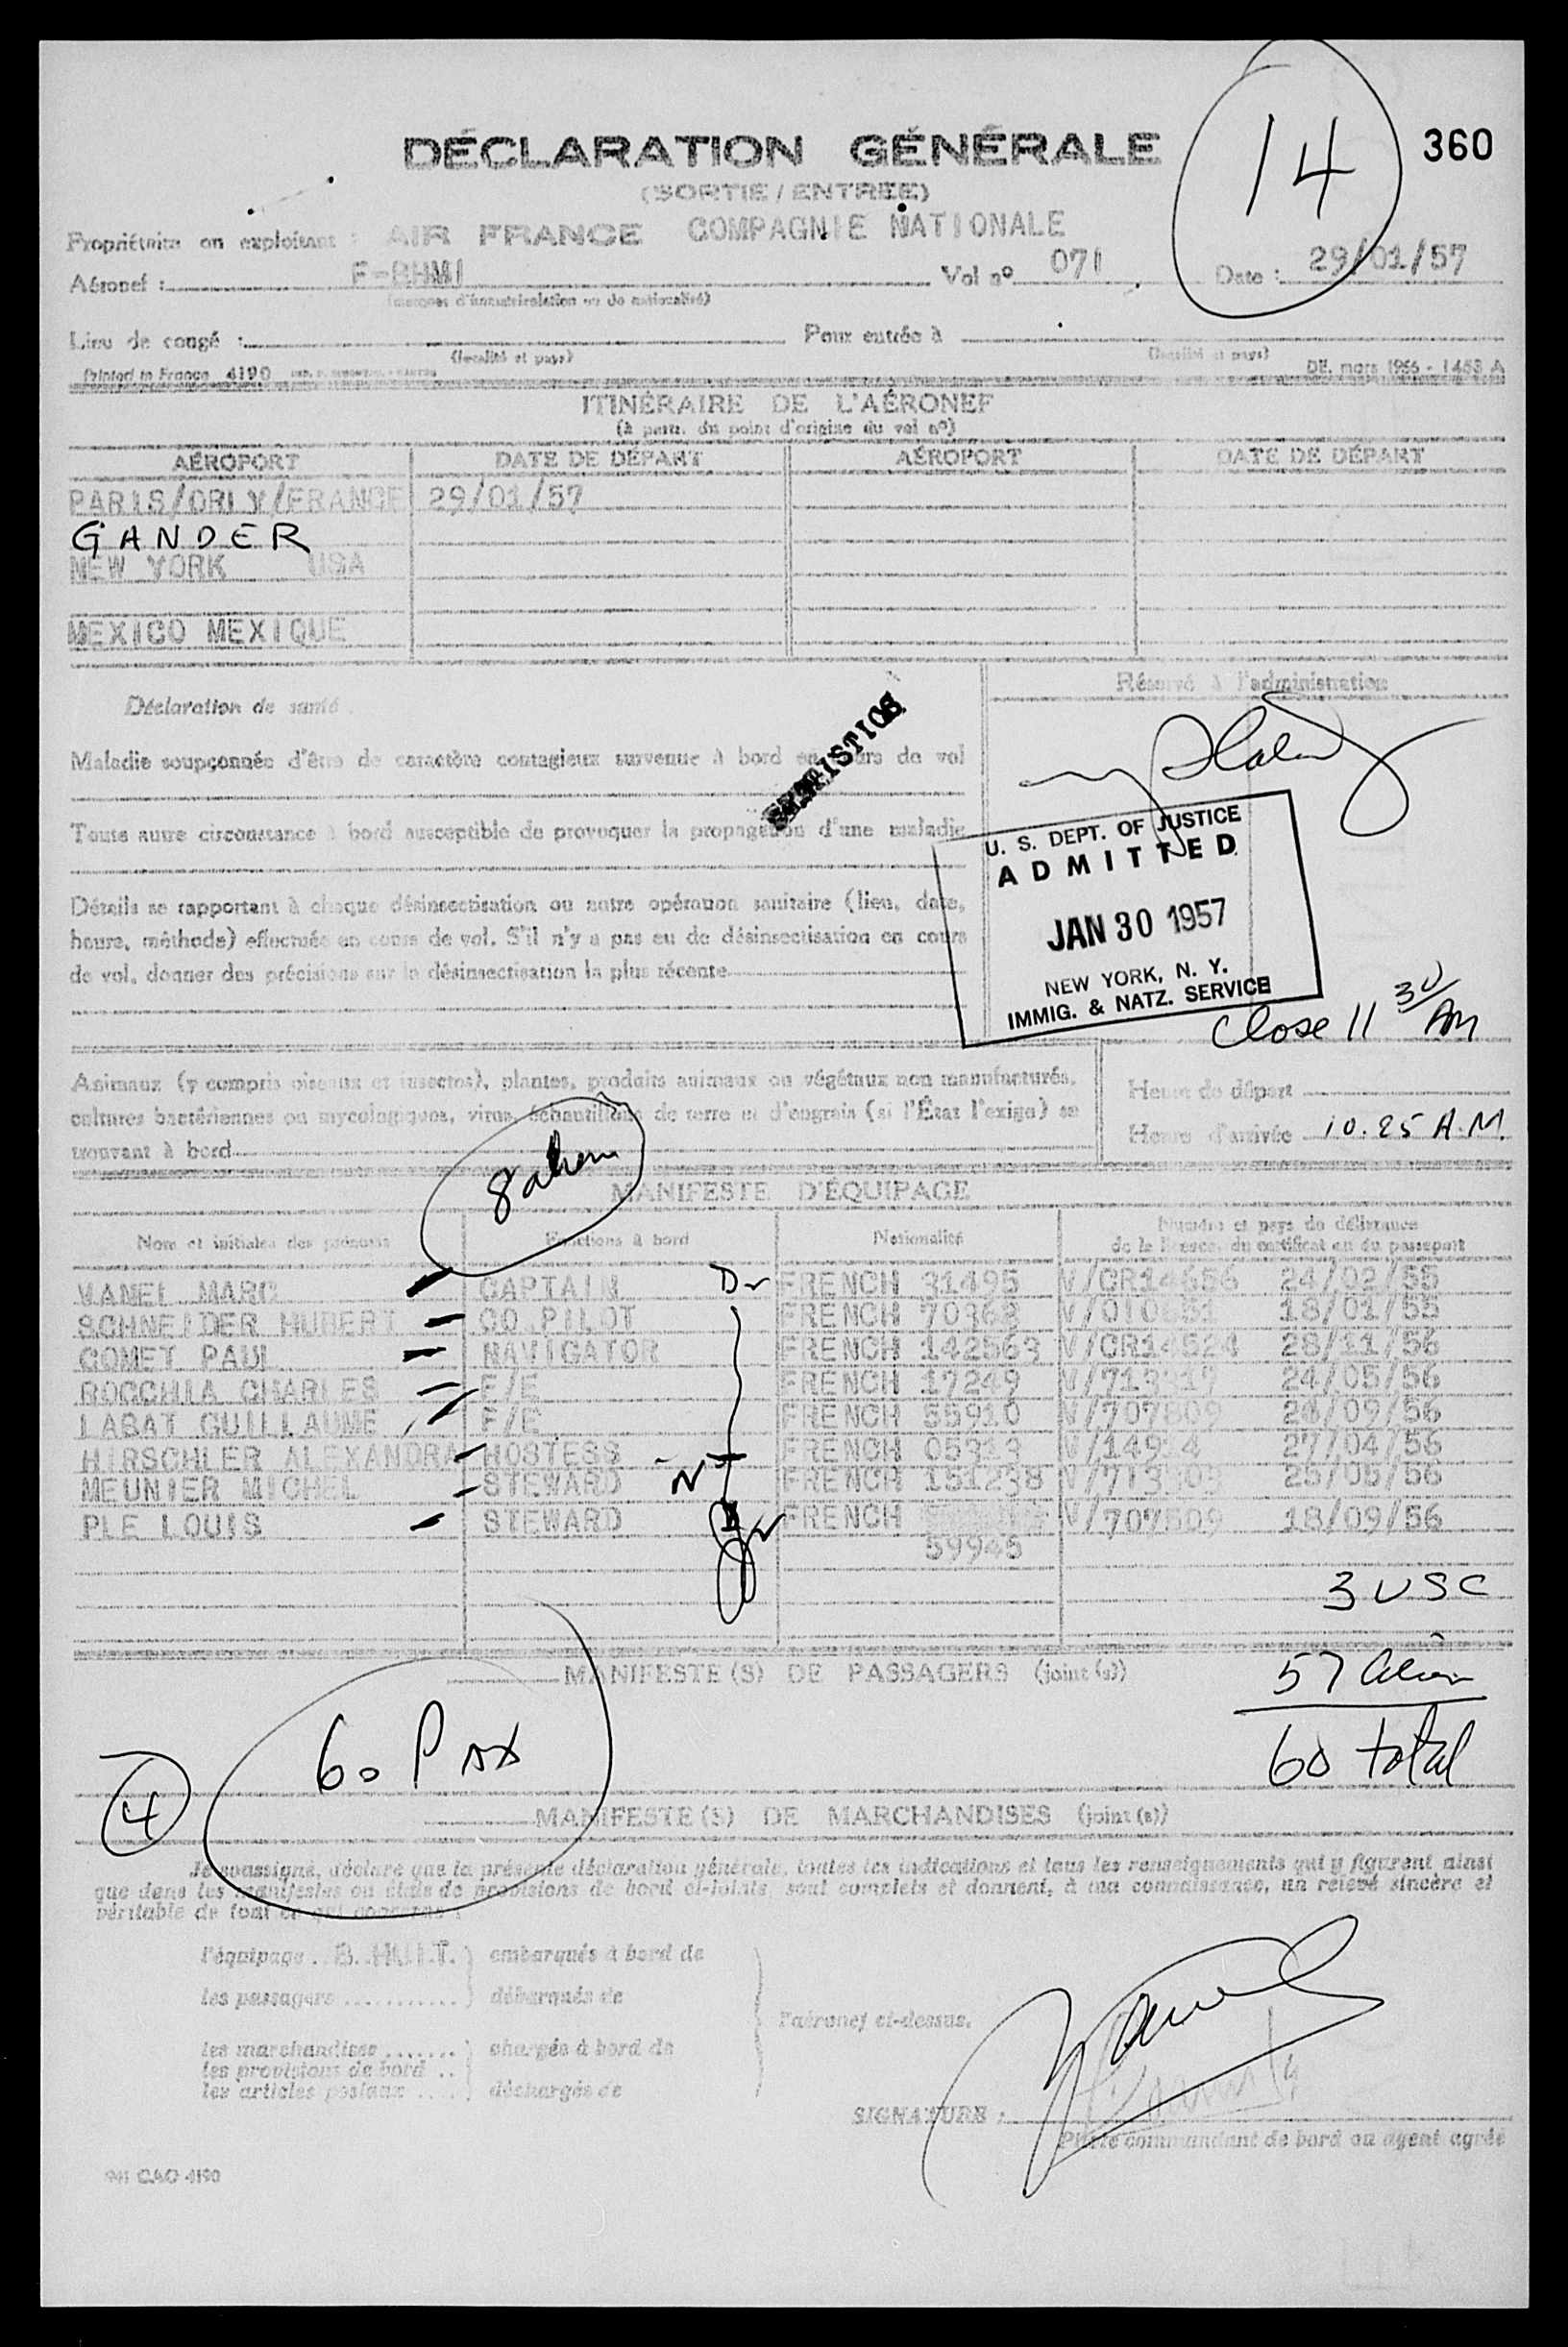 14
360
DÉCLARATION GÉNÉRALE
(SORTIE / ENTRÉE)
Propriétaire ou exploitant : AIR FRANCE COMPAGNIE NATIONALE
Aéronef : F-BHMI Vol nº 071 Date : 29/01/57
(marques d'immatriculation ou de nationalité)
Lieu de congé : Pour entrée à
(localité et pays) (localité et pays)
Printed in France 4190 DE. mars 1956 - 1453 A
ITINÉRAIRE DE L'AÉRONEF
(à partir du point d'origine du vol nº)
AÉROPORT DATE DE DÉPART AÉROPORT DATE DE DÉPART
PARIS/ORLY/FRANCE 29/01/57
GANDER
NEW YORK USA
MEXICO MEXIQUE
Déclaration de santé
Réservé à l'administration
Maladie soupçonnée d'être de caractère contagieux survenue à bord en cours de vol
Toute autre circonstance à bord susceptible de provoquer la propagation d'une maladie
U. S. DEPT. OF JUSTICE
ADMITTED
JAN 30 1957
NEW YORK, N. Y.
IMMIG. & NATZ. SERVICE
Détails se rapportant à chaque désinsectisation ou autre opération sanitaire (lieu, date,
heure, méthode) effectuée en cours de vol. S'il n'y a pas eu de désinsectisation en cours
de vol, donner des précisions sur la désinsectisation la plus récente
Close 11 30 AM
Animaux (y compris oiseaux et insectes), plantes, produits animaux ou végétaux non manufacturés,
cultures bactériennes ou mycologiques, virus, échantillons de terre et d'engrais (si l'État l'exige) se
trouvant à bord
Heure de départ
Heure d'arrivée 10.25 A.M.
8 alien
MANIFESTE D'ÉQUIPAGE
Nom et initiales des prénoms Fonctions à bord Nationalité Numéro et pays de délivrance
de la licence, du certificat ou du passeport
VANEL MARC CAPTAIN FRENCH 31495 V/CR14656 24/02/55
SCHNEIDER HUBERT CO PILOT FRENCH 70368 18/01/55
COMET PAUL NAVIGATOR FRENCH 142563 V/CR14524 28/11/56
ROCCHIA CHARLES F/E FRENCH 17249 24/05/56
LABAT GUILLAUME F/E FRENCH 55910 V/707809 26/09/56
HIRSCHLER ALEXANDRA HOSTESS FRENCH 05313 27/04/56
MEUNIER MICHEL STEWARD FRENCH 151238 25/05/56
PLE LOUIS STEWARD FRENCH V/707509 18/09/56
59945
3 USC
MANIFESTE (S) DE PASSAGERS (joint (s))
57 Alien
60 Pax
60 total
4
MANIFESTE (S) DE MARCHANDISES (joint (s))
Je soussigné, déclare que la présente déclaration générale, toutes les indications et tous les renseignements qui y figurent ainsi
que dans les manifestes ou états de provisions de bord ci-joints, sont complets et donnent, à ma connaissance, un relevé sincère et
véritable de tout ce qui concerne :
l'équipage . B. HUIT. embarqués à bord de
les passagers ........... débarqués de
l'aéronef ci-dessus.
les marchandises ....... chargés à bord de
les provisions de bord ..
les articles postaux .... déchargés de
SIGNATURE :
Pilote commandant de bord ou agent agréé
CAO 4190